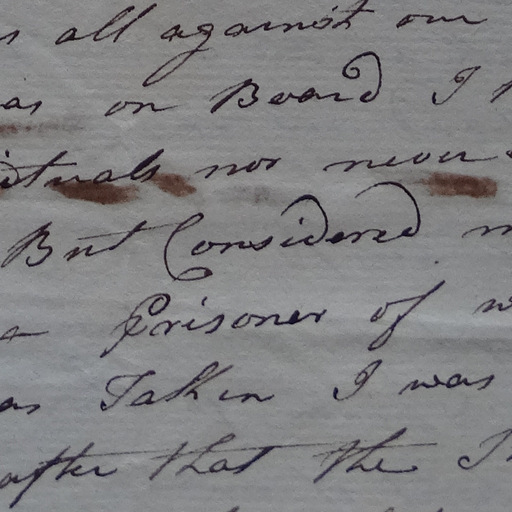 all against our
on Board I
nor never
But Considered
a Prisoner of
as Taken I was
after that the